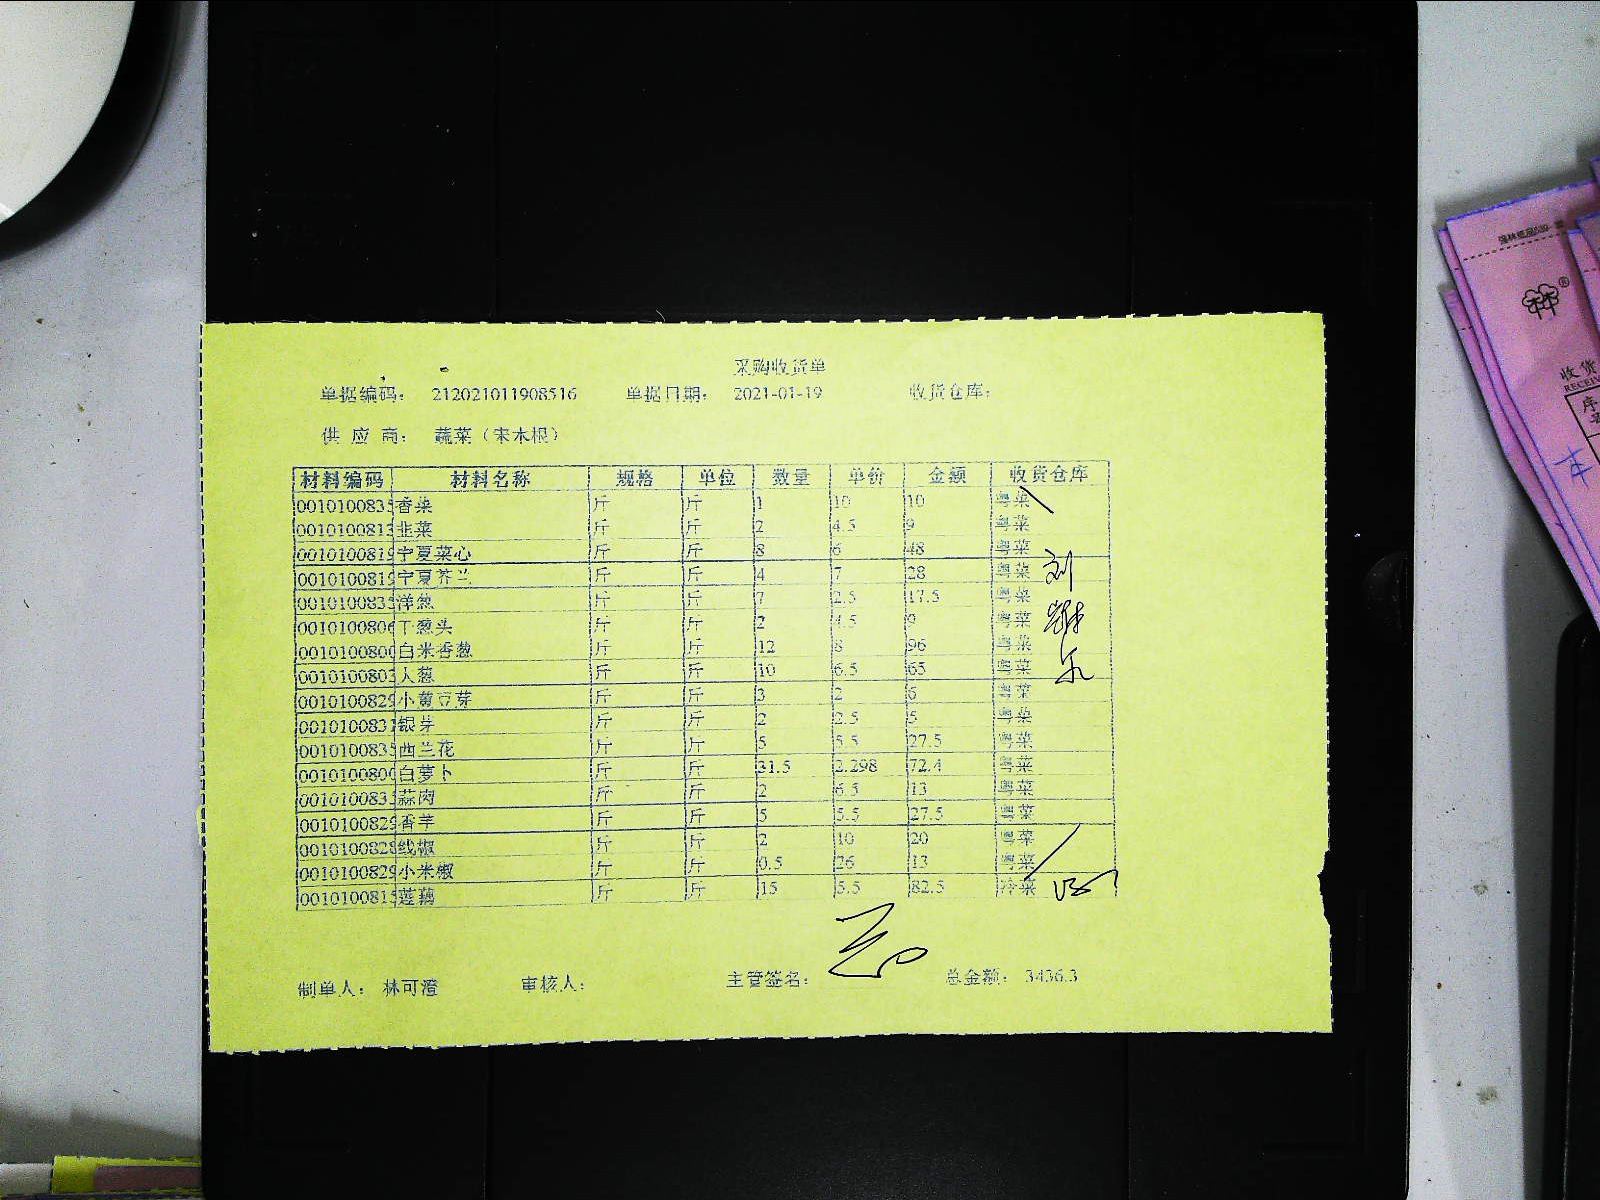 采购收货单
单据编码： 212021011908516 单据日期： 2021-01-19 收货仓库：
供 应 商： 蔬菜（宋木根）
材料编码 材料名称 规格 单位 数量 单价 金额 收货仓库
0010100835 香菜 斤 斤 1 10 10 粤菜
0010100813 韭菜 斤 斤 2 4.5 9 粤菜
0010100819 宁夏菜心 斤 斤 8 6 48 粤菜
0010100819 宁夏芥兰 斤 斤 4 7 28 粤菜
0010100835 洋葱 斤 斤 7 2.5 17.5 粤菜
0010100806 干葱头 斤 斤 2 4.5 9 粤菜
0010100800 白米香葱 斤 斤 12 8 96 粤菜
0010100803 大葱 斤 斤 10 6.5 65 粤菜
0010100829 小黄豆芽 斤 斤 3 2 6 粤菜
0010100831 银芽 斤 斤 2 2.5 5 粤菜
0010100835 西兰花 斤 斤 5 5.5 27.5 粤菜
0010100800 白萝卜 斤 斤 31.5 2.298 72.4 粤菜
0010100833 蒜肉 斤 斤 2 6.5 13 粤菜
0010100829 香芋 斤 斤 5 5.5 27.5 粤菜
0010100828 线椒 斤 斤 2 10 20 粤菜
0010100829 小米椒 斤 斤 0.5 26 13 粤菜
0010100815 莲藕 斤 斤 15 5.5 82.5 冷菜
制单人： 林可澄 审核人： 主管签名： 总金额： 3436.3
收货
RECEIV
序